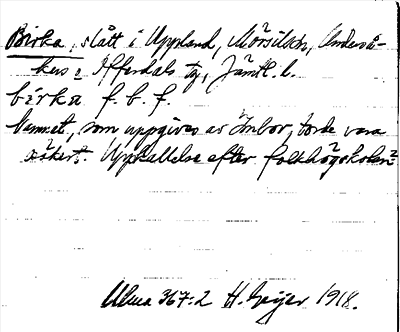 Birka, slått i Uppland, Mörsilsch, Underså-
kers o Offerdals tg, Jämtl. l.
birka f. b. f.
Namnet, som uppgives av Inbor, torde vara
säkert. Uppkallelse efter folkhögskolan?
Ulma 367:2 H. Geijer 1918.